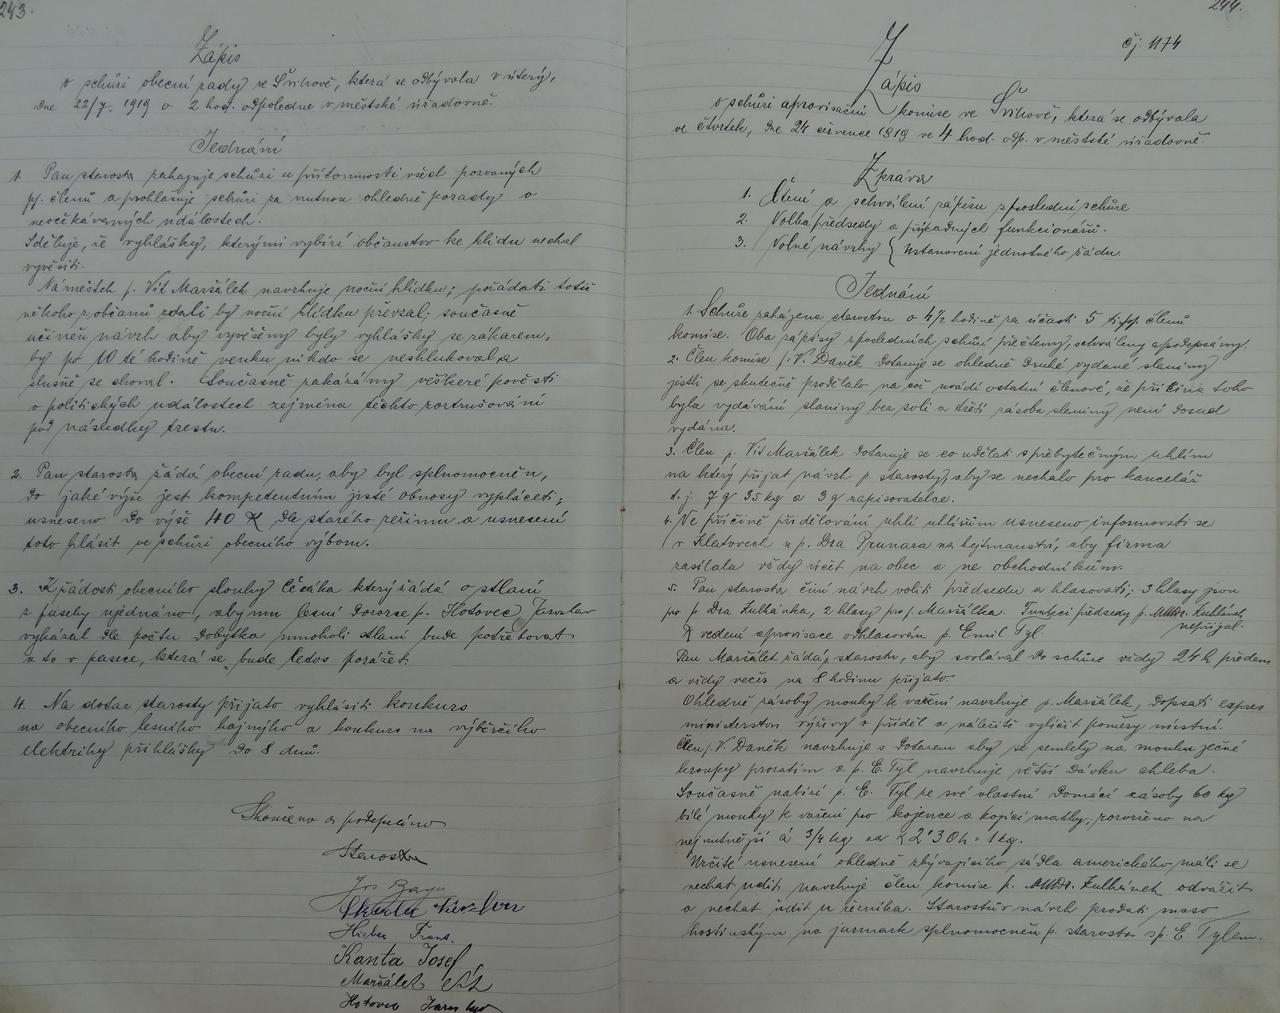 243.
Zápis
o schůzi obecní rady ve Švihově, která se odbývala v úterý,
dne 22/7. 1919 o 2 hod. odpoledne v městské úřadovně.
Jednání
1. Pan starosta zahajuje schůzi u přítomnosti všech pozvaných
pp. členů a prohlašuje schůzi za nutnou ohledně porady o
neočekávaných událostech.
Sděluje, že vyhlášky, kterými vybízí občanstvo ke klidu nechal
vyvěsiti.
Náměstek p. Vít Maršálek navrhuje noční hlídku; požádati totiž
někoho z občanů zdali by noční hlídku převzal; současně
učiněn návrh aby vyvěšeny byly vyhlášky se zákazem,
by po 10 té hodině venku nikdo se neshlukoval a
slušně se choval. Současně zakázány veškeré pověsti
o politických událostech zejména těchto roztrušování
pod následky trestu.
2. Pan starosta žádá obecní radu, aby byl splnomocněn,
do jaké výše jest kompetentním jisté obnosy vypláceti;
usneseno do výše 40 K dle starého režimu a usnesení
toto hlásit ve schůzi obecního výboru.
3. K žádosti obecního slouhy Čečáka který žádá o stlaní
z paseky ujednáno, aby mu lesní dozorce p. Hotovec Jaroslav
vykázal dle počtu dobytka mnoholi stlaní bude potřebovat
a to v pasece, která se bude letos porážet.
4. Na dotaz starosty přijato vyhlásiti konkurs
na obecního lesního hajného a konkurs na výběrčího
elektriky přihlášky do 8 dnů.
Skončeno a podepsáno
Starosta
Jos
Hieber Frant.
Kanta Josef
Maršálek Vít
Hotovec Jaroslav
244.
čj. 1174
Zápis
o schůzi aprovisační komise ve Švihově, která se odbývala
ve čtvrtek, dne 24 července 1919 ve 4 hod. odp. v městské úřadovně.
Zpráva
1. Čtení a schválení zápisu z poslední schůze
2. Volba předsedy a případných funkcionářů.
3. Volné návrhy { Ustanovení jednotného řádu.
Jednání
1. Schůze zahájena starostou o 4 1/2 hodině za účasti 5 ti pp. členů
komise. Oba zápisy z posledních schůzí přečteny, schváleny a podepsány.
2. Člen komise p. V. Daněk dotazuje se ohledně druhé vydané slaniny
jestli se skutečně prodělalo na což uvádí ostatní členové, že příčina toho
byla vydávání slaniny bez soli a třetí zásoba slaniny není dosud
vydána.
3. Člen p. Vít Maršálek dotazuje se co udělati s přebytečným uhlím
na který přijat návrh p. starosty, aby se nechalo pro kancelář
t. j. 7 q 35 kg a 3 q zapisovatelce.
4. Ve příčině přidělování uhlí uhlířům usneseno informovati se
v Klatovech u p. Dra Prunara na hejtmanství, aby firma
zasílala vždy účet na obec a ne obchodníkům.
5. Pan starosta činí návrh voliti předsedu a hlasovati; 3 hlasy jsou
pro p. Dra Kulhánka, 2 hlasy pro p. Maršálka. Funkci předsedy p. MUDr. Kulhánek
nepřijal.
K vedení aprovisace odhlasován p. Emil Tyl.
Pan Maršálek žádá p. starostu, aby svolával do schůze vždy 24 h předem
a vždy večer na 8 hodinu přijato.
Ohledně zásoby mouky k vaření navrhuje p. Maršálek, dopsati expres
ministerstvu výživy o příděl a náležitě vylíčit poměry místní.
Člen p. V. Daněk navrhuje s dotazem aby se semlely na mouku ječné
kroupy prozatím a p. E. Tyl navrhuje větší dávku chleba.
Současně nabízí p. E. Tyl ze své vlastní domácí zásoby 60 kg
bílé mouky k vaření pro kojence a kojící matky; rozvrženo na
nejnutnější á 3/4 kg za K 2'30 h = 1 kg.
Určité usnesení ohledně zbývajícího sádla amerického máli se
nechat udit navrhuje člen komise p. MUDr. Kulhánek odvážit
a nechat udit u řezníka. Starostův návrh prodati maso
hostinským na jarmark splnomocněn p. starosta s p. E Tylem.